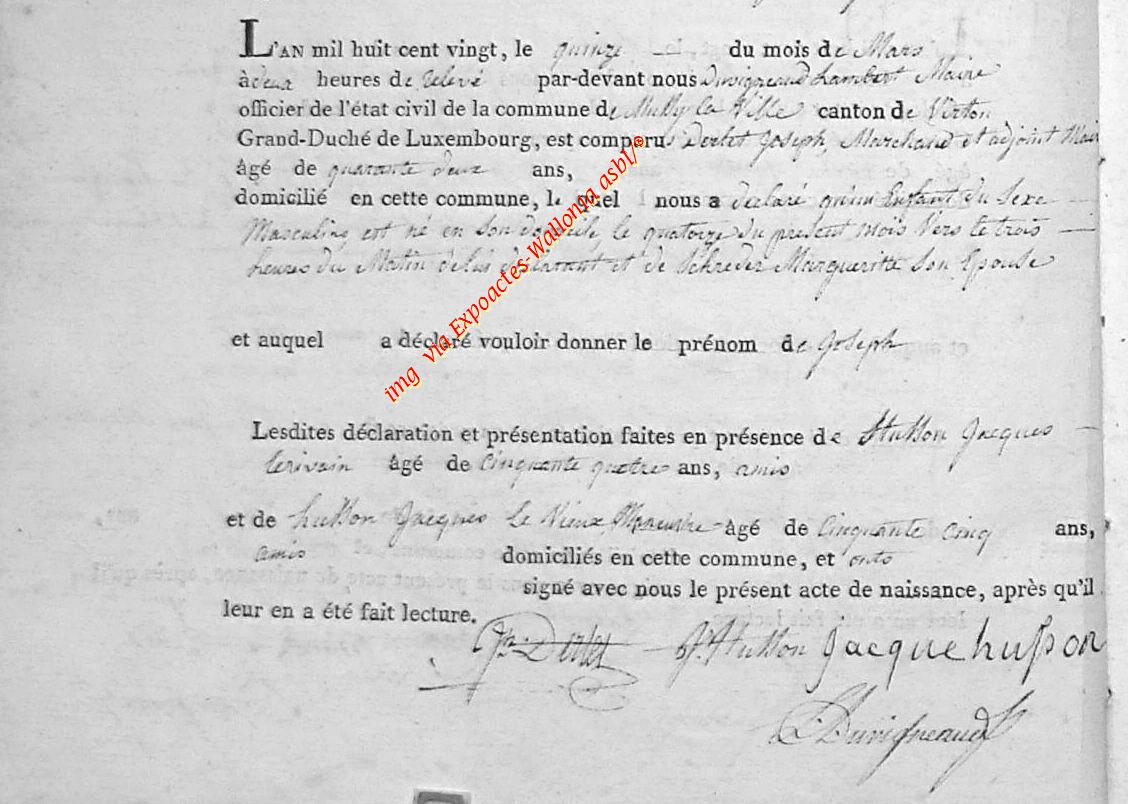 L'AN mil huit cent vingt, le quinze du mois de Mars
à deux heures de relevé par-devant nous Duvigneaud Lambert Maire
officier de l'état civil de la commune de Mussy la Ville canton de Virton
Grand-Duché de Luxembourg, est comparu Derlet Joseph, Marchand et adjoint Maire
âgé de quarante deux ans,
domicilié en cette commune, lequel nous a déclaré qu'un Enfant du Sexe
Masculin, est né en Son domicile, le quatorze du présent mois Vers le trois
heures du Matin de lui déclarant et de Schreder Margueritte Son Epouse
et auquel a déclaré vouloir donner le prénom de Joseph
Lesdites déclaration et présentation faites en présence de Husson Jacques
Ecrivain âgé de Cinquante quatre ans, amis
et de husson Jacques Le Vieux âgé de Cinquante cinq ans,
amis domiciliés en cette commune, et onts
signé avec nous le présent acte de naissance, après qu'il
leur en a été fait lecture.
Derlet Husson Jacque husson
Duvigneaud
img via Expoactes-Wallonia asbl/®